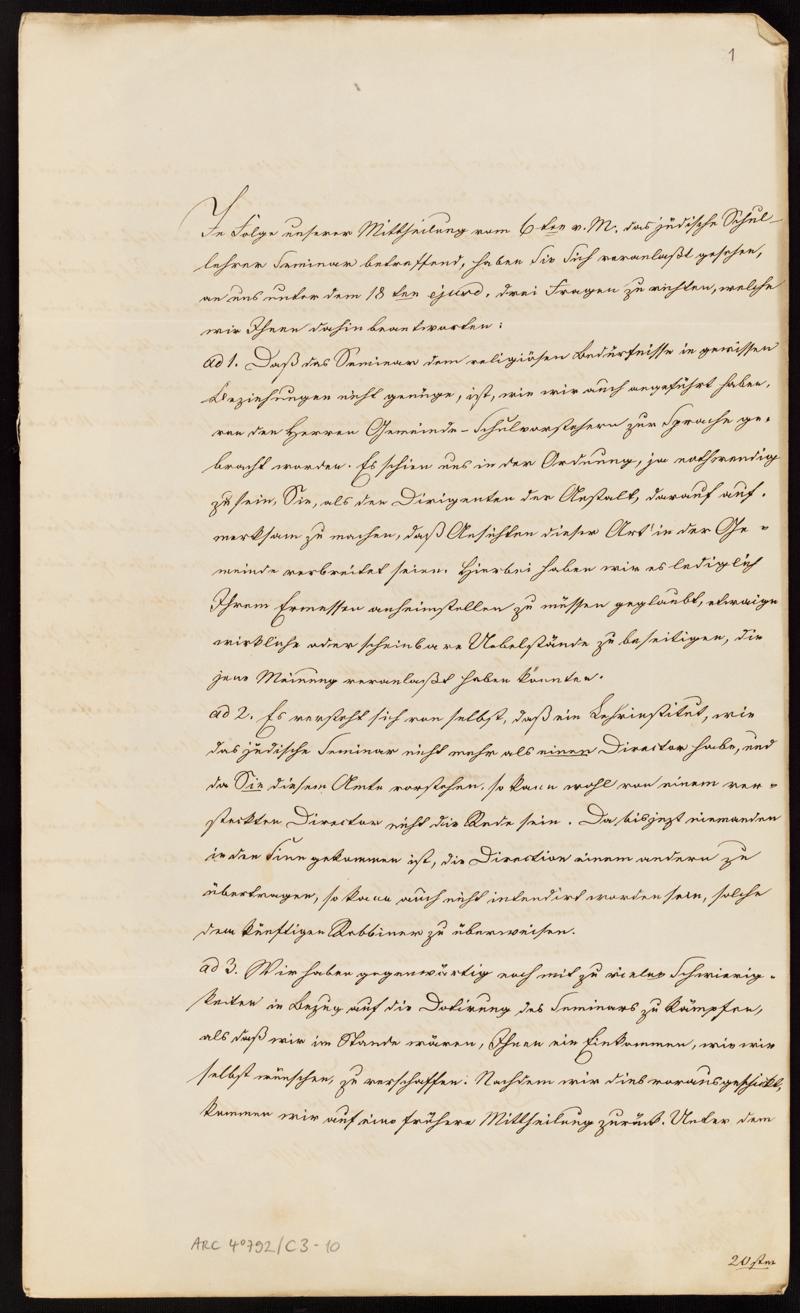 1
In Folge unserer Mittheilung vom 6ten v. M. das jüdische Schul-
lehrer Seminar betreffend, haben Sie Sich veranlaßt gesehen,
an uns unter dem 18ten ejusd. drei Fragen zu richten, welche
wir Ihnen dahin beantworten:
ad 1. Daß das Seminar dem religiösen Bedürfnisse in gewissen
Beziehungen nicht genüge, ist, wie wir auch angeführt haben,
von den Herren Gemeinde-Schulvorstehern zur Sprache ge-
bracht worden. Es schien uns in der Ordnung, ja nothwendig
zu sein, Sie, als den Dirigenten der Anstalt, darauf auf-
merksam zu machen, daß Ansichten dieser Art in der Ge-
meinde verbreitet seien. Hierbei haben wir es lediglich
Ihrem Ermessen anheimstellen zu müssen geglaubt, etwaige
wirkliche oder scheinbare Uebelstände zu beseitigen, die
jene Meinung veranlaßt haben könnten.
ad 2. Es versteht sich von selbst, daß ein Lehrinstitut, wie
das jüdische Seminar nicht mehr als einen Director habe, und
da Sie diesem Amte vorstehen, so kann wohl von einem ver-
steckten Director nicht die Rede sein. Da bis jezt niemanden
in den Sinn gekommen ist, die Direction einem andern zu
übertragen, so kann auch nicht intendirt worden sein, solche
dem künftigen Rabbiner zu überweisen.
ad 3. Wir haben gegenwärtig noch mit zu vielen Schwierig-
keiten in Bezug auf die Dotirung des Seminars zu kämpfen,
als daß wir im Stande wären, Ihnen ein Einkommen, wie wir
selbst wünschen, zu verschaffen. Nachdem wir dies vorausgeschickt,
kommen wir auf eine frühere Mittheilung zurück. Unter dem
ARC 4°792/C3-10
20sten